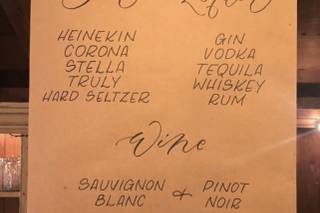 HEINEKIN
CORONA
STELLA
TRULY
HARD SELTZER
GIN
VODKA
TEQUILA
WHISKEY
RUM
Wine
SAUVIGNON
BLANC
&
PINOT
NOIR